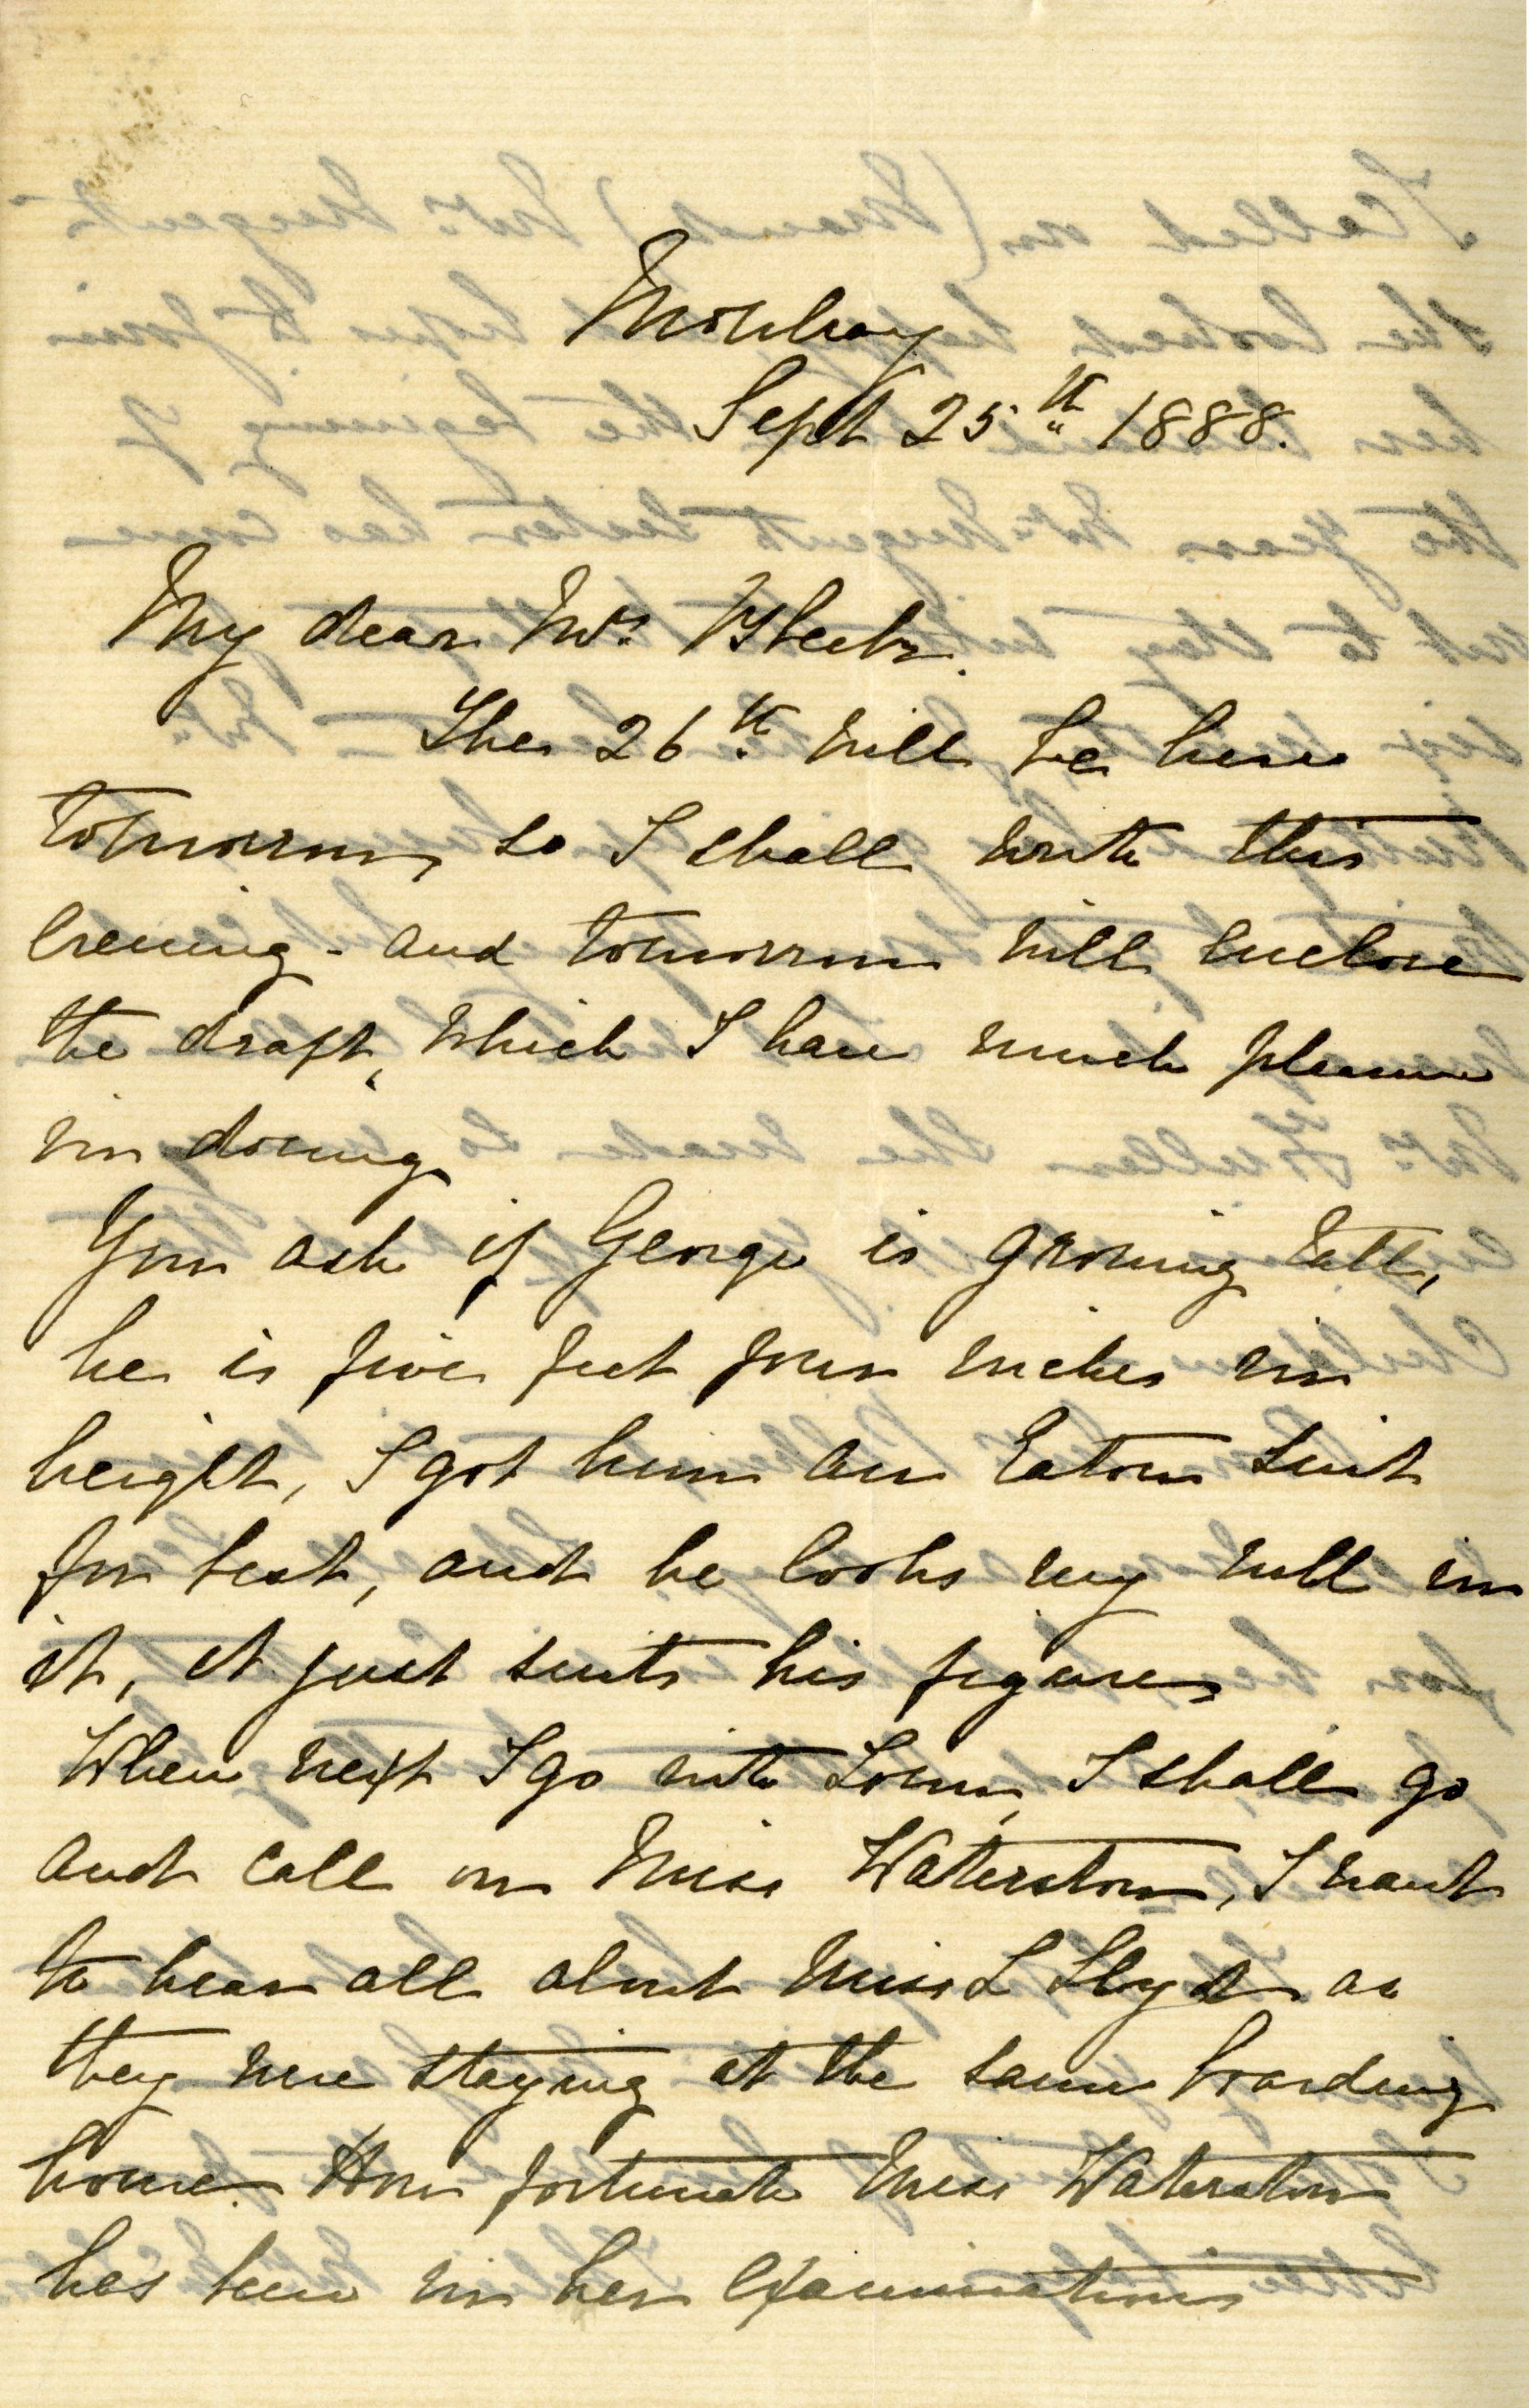 Mowbray
Sept 25th 1888.
My dear Mrs Bleek.
The 26th will be here
tomorrow, so I shall write this
evening - and tomorrow will enclose
the draft, which I have much pleasure
in doing
You ask if George is growing tall,
he is five feet four inches in
height, I got him an Eaton suit
for best, and he looks very well in
it, it just suits his figure,
When next I go into Town, I shall go
and call on Miss Waterston, I want
to hear all about Miss L Lloyd as
they were staying at the same boarding
house. How fortunate Miss Waterston
has been in her examinations